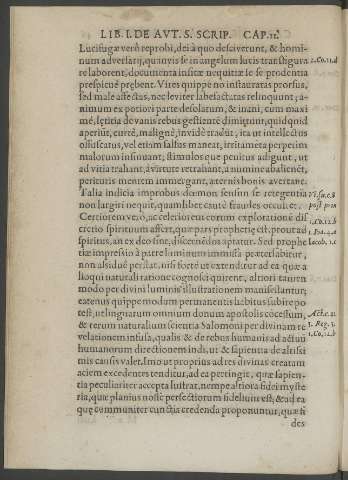 LIB. I. DE AVT. S. SCRIP. CAP. II.
Lucifugæ verò reprobi, dei à quo desciverunt, & homi-
num adversarij, quanvis se in angelum lucis transfigura 2.Co.11.d
re laborent, documenta insitæ nequitiæ se se prodentia
prespicuè præbent. Vires quippe nó instauratas prorsus,
sed malè affectas, nec leviter labefactatas relinquunt; a-
nimum ex potiori parte desolatum, & inani, cum maxi
mè, lętitia de vanis rebus gestiente dimittunt, quid quod
aperiút, curtè, malignè, invidè tradút, ita ut intellectus
offuscatus, vel etiam falsus maneat, irritameta perperam
malorum insinuant; stimulos que penitus adigunt, ut
ad vitia trahant, à virtute retrahant, a numine abalienét,
perituris mentem immergant, æternis bonis avertant.
Talia indicia improbus dæmon sensim se retegentia
non largiri nequit, quamlibet cautè fraudes occulet.
Certiorem verò, ac celeriorem eorum exploratione dis
cretio spirituum affert, quæ pars prophetię est, prout ad 1.Co.12.b
spiritus, an ex deo sint, discernédos aptatur. Sed prophe Iacob.1.c
tiæ impressio à patre luminum immissa præterlabitur,
non assiduè perstat, nisi fortè ut extenditur ad ea quæ a
loqui naturali ratione cognosci quirent, altiori tamen
modo per divini luminis illustrationem manifestantur;
eatenus quippe modum permanentis habitus subire po
test, ut linguarum omnium donum apostolis cócessum, Act.2.a
& rerum naturalium scientia Salomoni per divinam re 3. Reg.3.
velationem infusa, qualis & de rebus humanis ad actuú 1.Co.12.b
humanorum directionem indi, ut & sapientia de altissi
mis causis valet. Imo ut proprius ad res divinas creatam
aciem excedentes tenditur, ad ea pertingit, quæ sapien-
tia peculiariter accepta lustrat, nempe altiora fidei myste
ria, quæ planius nosse perfectiorum fidelium est; & ad ea
quę communiter cunctis credenda proponuntur, quæ fi
des